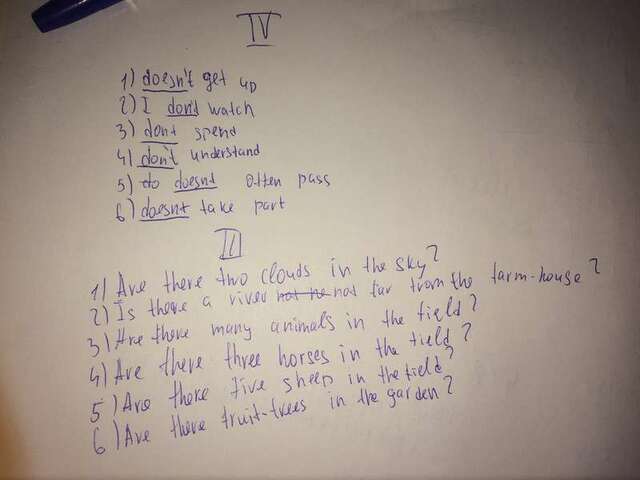 IV
1) doesn't get up
2) I don't watch
3) don't spend
4) don't understand
5) do doesnt often pass
6) doesnt take part
II
1) Are there two clouds in the sky?
2) Is there a river not far from the farm-house?
3) Are there many animals in the field?
4) Are there three horses in the field?
5) Are there five sheep in the field?
6) Are there fruit-trees in the garden?